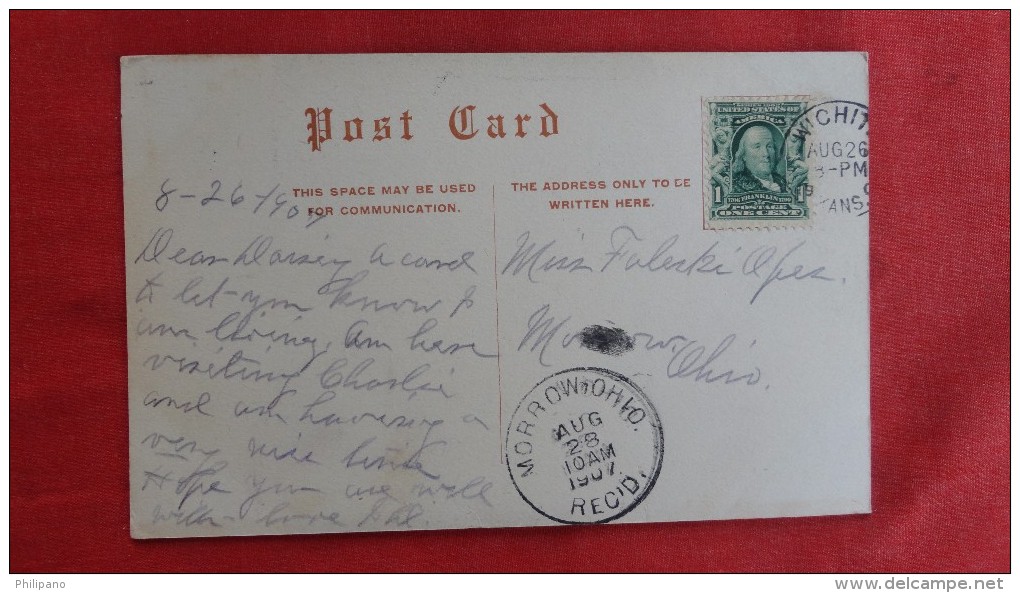 Post Card
THIS SPACE MAY BE USED
FOR COMMUNICATION.
THE ADDRESS ONLY TO BE
WRITTEN HERE.
SERIES 1902
UNITED STATES OF
AMERICA
1706 FRANKLIN 1790
1 POSTAGE 1
ONE CENT
WICHIT
AUG 26
8-PM
19
ANS.
8-26-1907
Dear Daisy a card
to let you know I
am living. Am here
visiting Charlie
and am having a
very nice time
Hope you are well
with love
Miss
Morrow
Ohio.
MORROW, OHIO.
AUG
28
10AM
1907
REC'D.
Philipano
www.delcampe.net